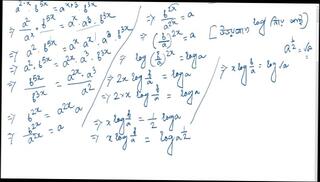 a^{2-x} . b^{5x} = a^{x+3} . b^{3x}
⇒ a²/a^x . b^{5x} = a^x . a³ . b^{3x}
⇒ a² . b^{5x} = a^x . a^x . a³ . b^{3x}
⇒ a² . b^{5x} = a^{2x} . a³ . b^{3x}
⇒ b^{5x}/b^{3x} = a^{2x} . a³/a²
⇒ b^{2x} = a^{2x} . a
⇒ b^{2x}/a^{2x} = a
⇒ b^{2x}/a^{2x} = a
⇒ (b/a)^{2x} = a
⇒ log (b/a)^{2x} = log a
⇒ 2x log b/a = log a
⇒ 2x log b/a = log a
⇒ x log b/a = 1/2 log a
⇒ x log b/a = log a^{1/2}
[উভয়পক্ষে log নিয়ে পাই]
a^{1/2} = √a
⇒ x log b/a = log √a